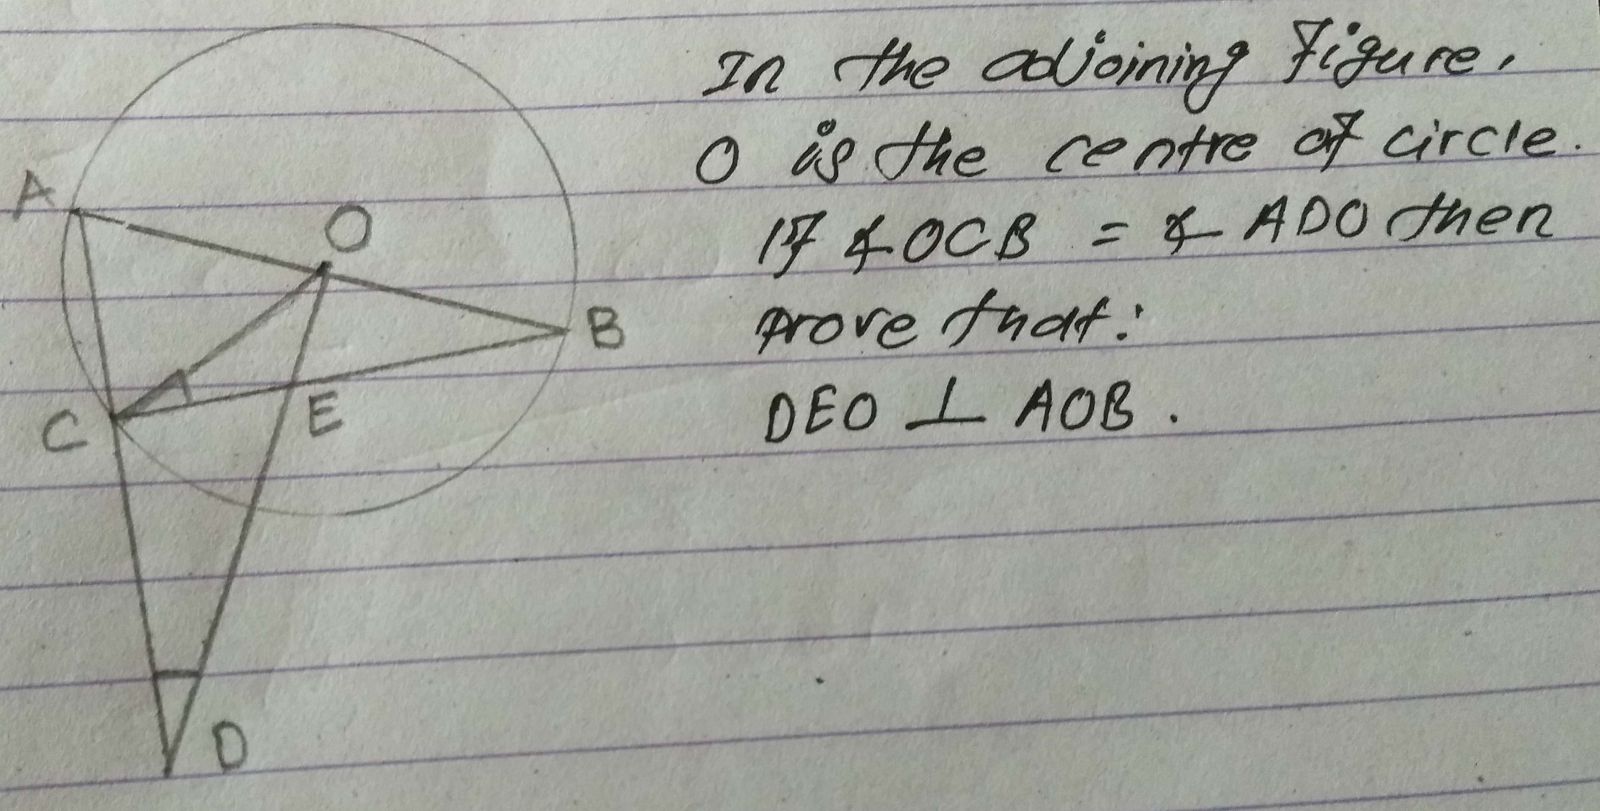 In the adjoining figure,
O is the centre of circle.
If ∡OCB = ∡ADO then
prove that:
DEO ⊥ AOB.
A
O
B
C
E
D